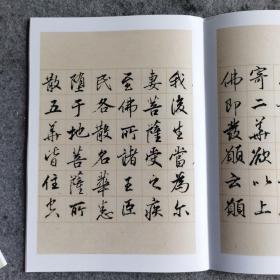 寄二華欲以上
佛即發願云願
我後生當為尔
妻菩薩受之疾
至佛所諸王臣
民各散名華悉
墮于地菩薩所
散五華皆住空